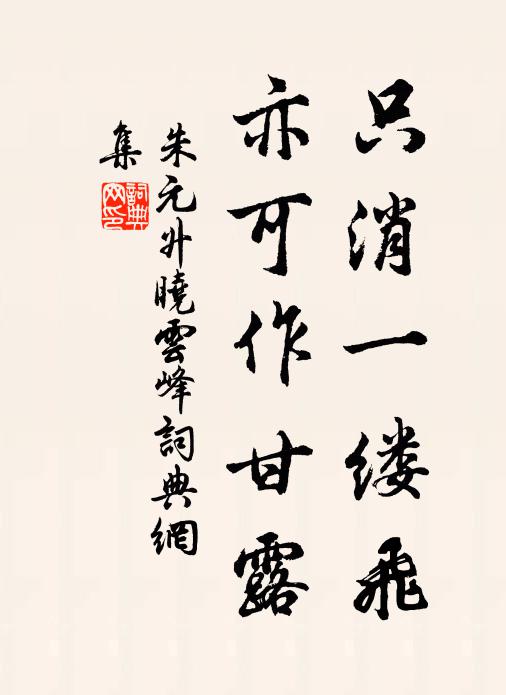 只消一缕飛
亦可作甘露
朱元升曉雲峰詞典網
集
詞典
网印